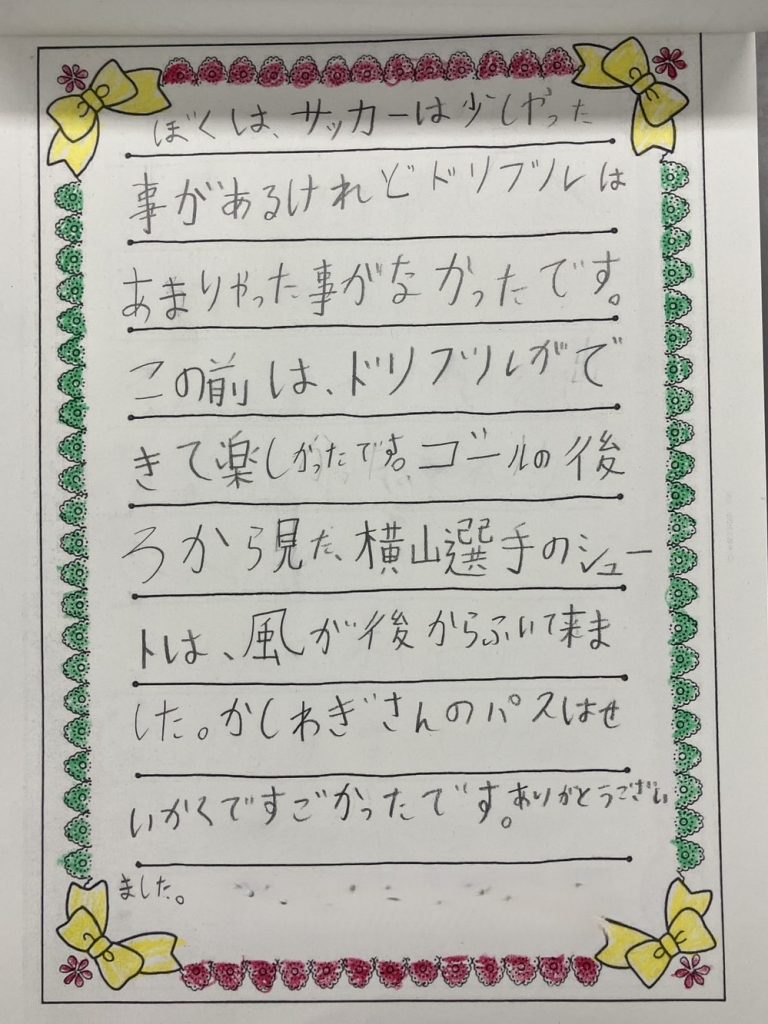 ぼくは、サッカーは少しやった
事があるけれどドリブルは
あまりやった事がなかったです。
この前は、ドリブルがで
きて楽しかったです。ゴールの後
ろから見た、横山選手のシュー
トは、風が後からふいて来ま
した。かしわぎさんのパスはせ
いかくですごかったです。ありがとうござい
ました。